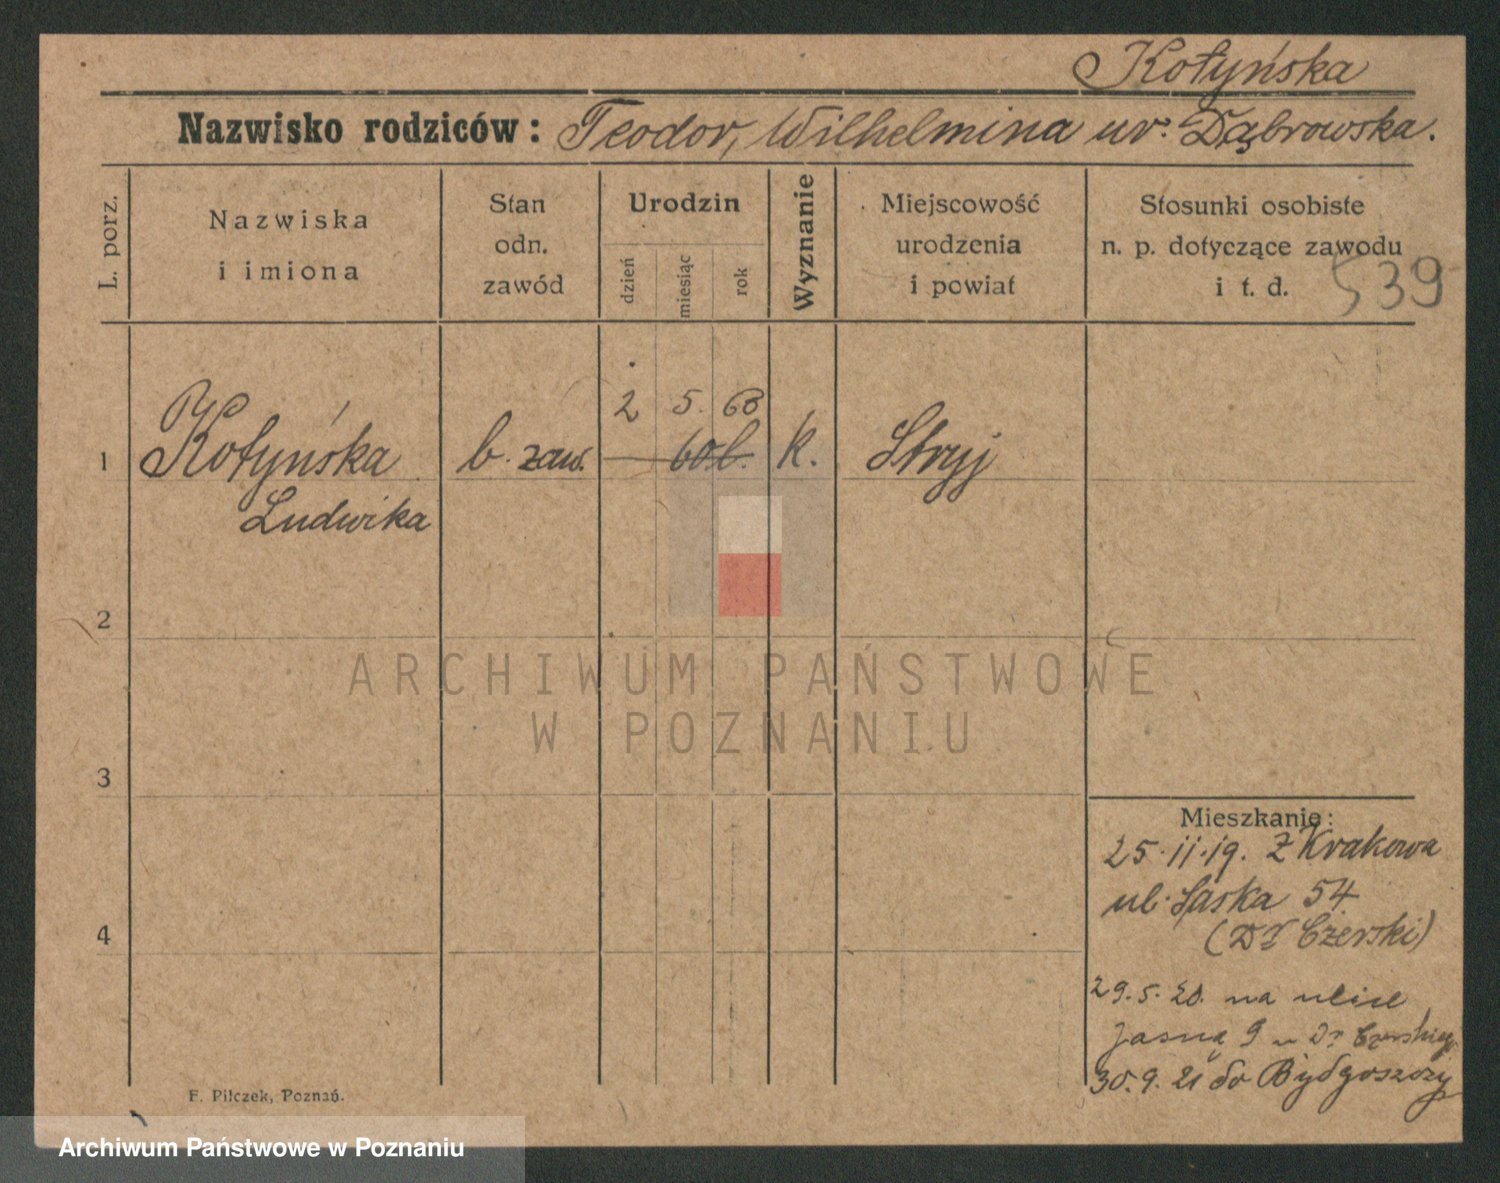 Kotyńska
Nazwisko rodziców: Teodor, Wilhelmina ur. Dąbrowska.
L. porz.
Nazwiska
i imiona
Stan
odn.
zawód
Urodzin
dzień
miesiąc
rok
Wyznanie
Miejscowość
urodzenia
i powiat
Stosunki osobiste
n. p. dotyczące zawodu
i t. d.
539
2 5. 68
1 Kotyńska b. zaw. 60 l. k. Stryj
Ludwika
2
3
4
ARCHIWUM PAŃSTWOWE
W POZNANIU
Mieszkanie:
25.11.19. Z Krakowa
ul. Łaska 54
(Dr Czerski)
29.5.20. na ulice
Jasną 9 u Dr Czerskiego
30.9.21 do Bydgoszczy
F. Pilczek, Poznań.
Archiwum Państwowe w Poznaniu